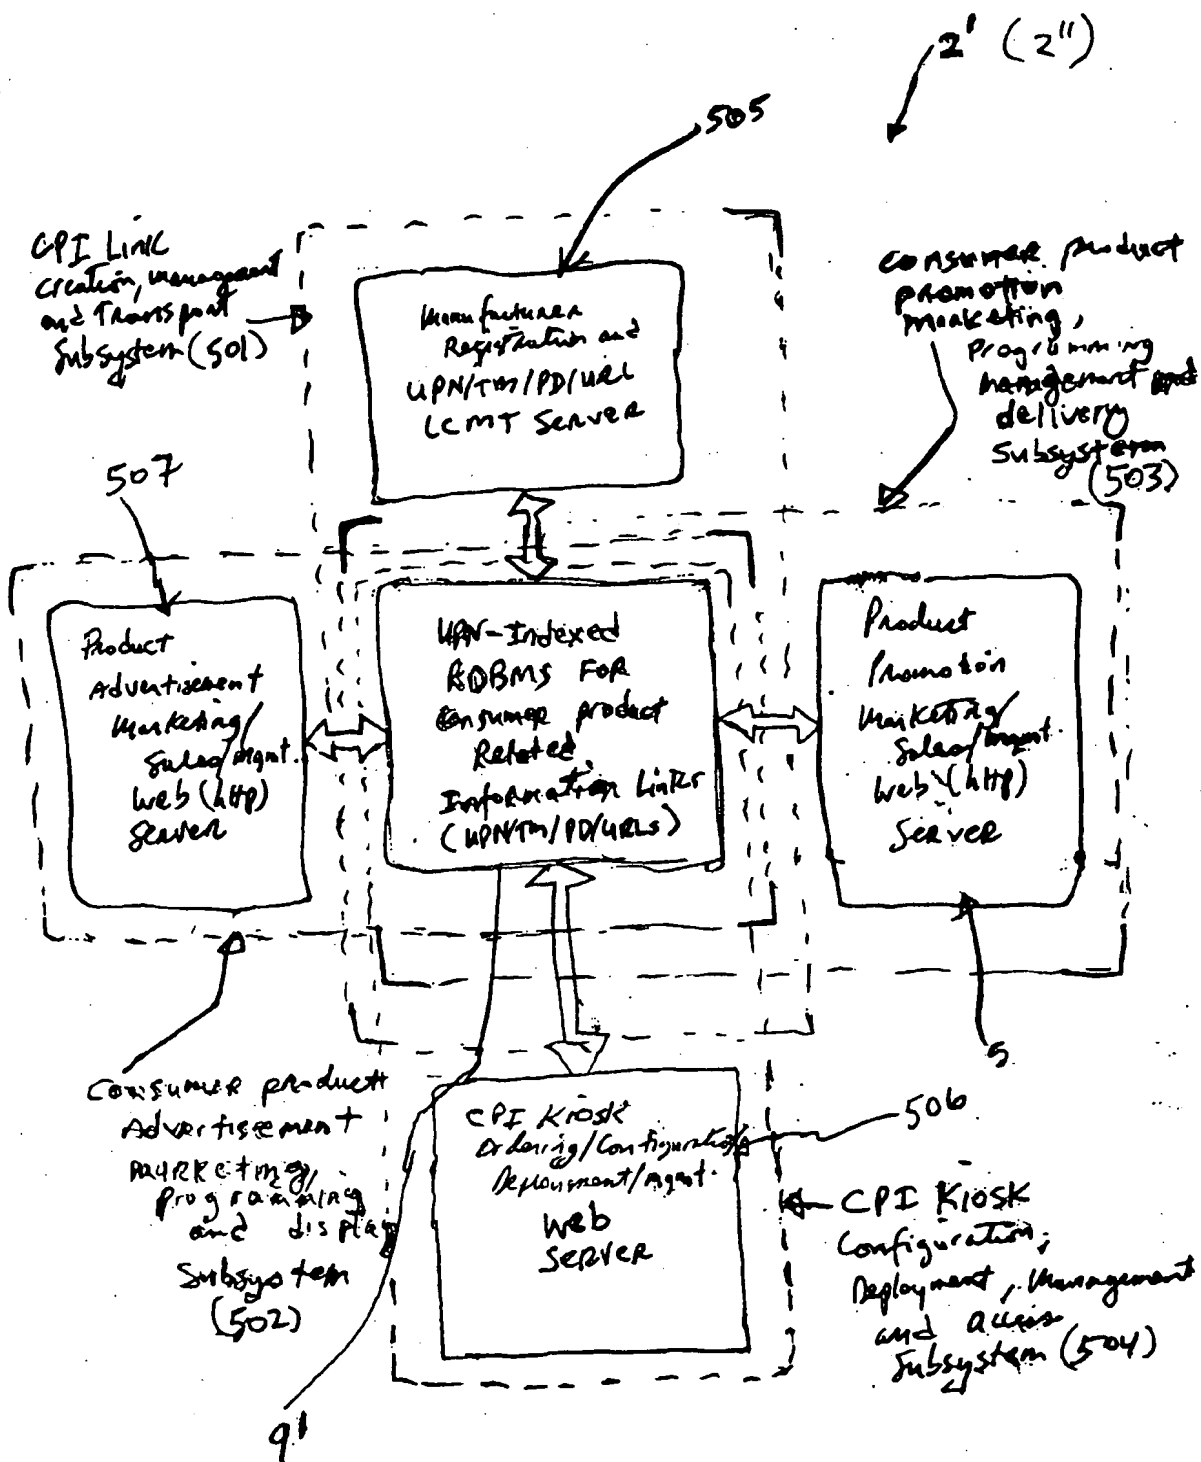 2' (2")
505
CPI Link
creation, management
and Transport
Subsystem (501)
Manufacturer
Registration and
UPN/TM/PD/URL
LCMT Server
Consumer product
promotion
marketing,
Programming
management and
delivery
Subsystem
(503)
507
Product
Advertisement
Marketing/
Sales/mgmt.
Web (http)
Server
UPN-Indexed
RDBMS FOR
Consumer product
Related
Information Links
(UPN/TM/PD/URLs)
Product
Promotion
Marketing/
Sales/mgmt.
Web (http)
Server
5
Consumer product
Advertisement
marketing,
programming
and display
Subsystem
(502)
CPI Kiosk
Ordering/Configuration/
Deployment/mgmt.
Web
Server
506
CPI Kiosk
Configuration,
Deployment, Management
and access
Subsystem (504)
9'